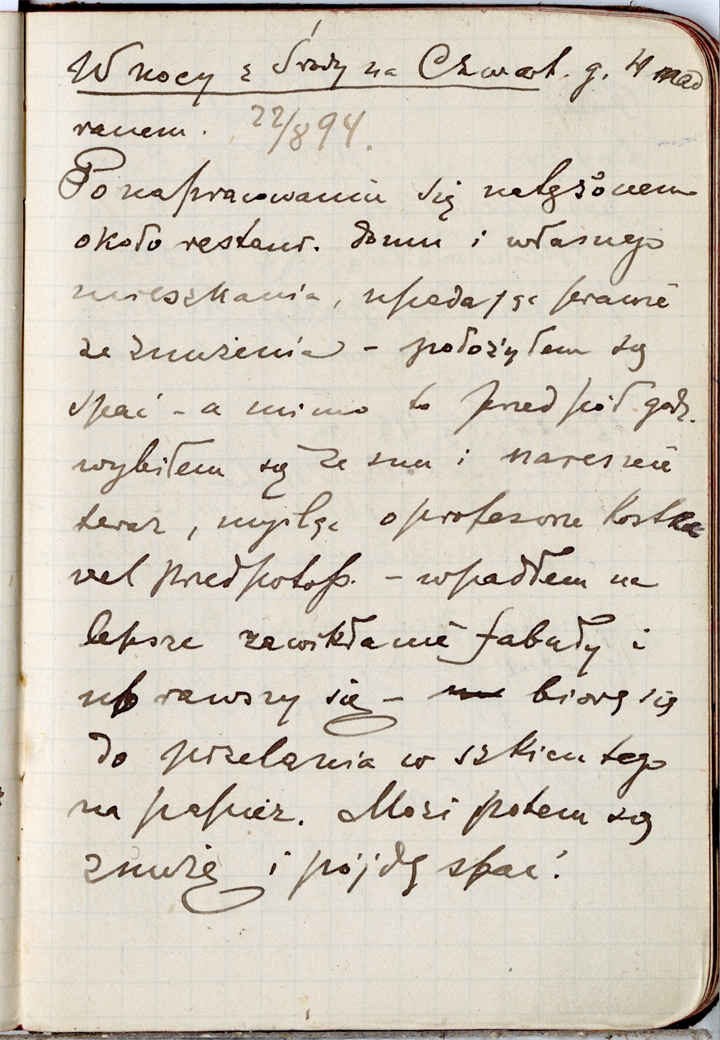 W nocy z Środy na Czwart. g. 4 nad
ranem. 22/8 94.
Po napracowaniu się natężonem
około restaur. domu i własnego
mieszkania, upadając prawie
ze znużenia – położyłem się
spać – a mimo to przed pół godz.
wybiłem się ze snu i nareszcie
teraz, myśląc o profesorze Kostka
vel przedpotop. – wpadłem na
lepsze zawikłanie fabuły i
ubrawszy się – biorę się
do przelania w szkicu tego
na papier. Może potem się
znużę i pójdę spać!